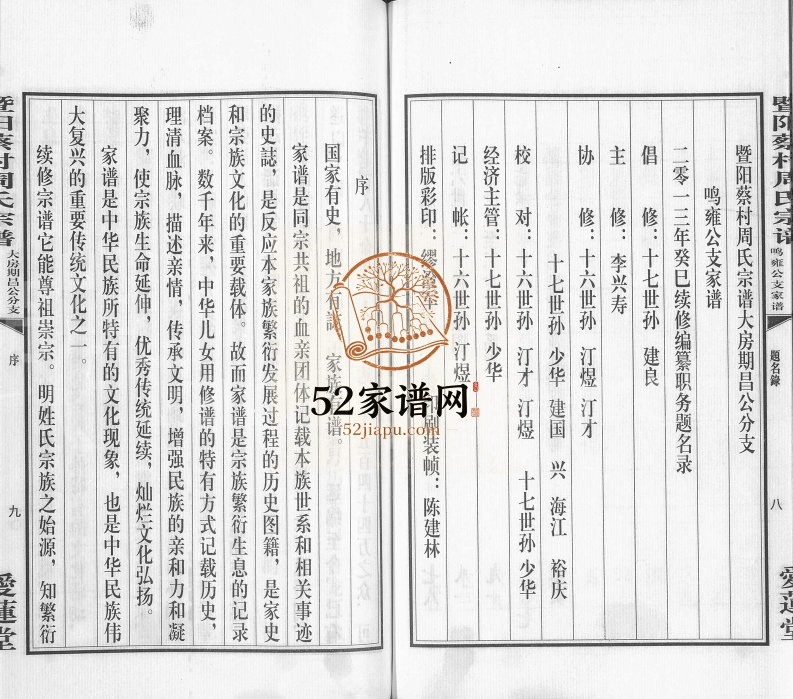 暨阳蔡村周氏宗谱
鸣雍公支家谱
题名錄
八
愛蓮堂
暨阳蔡村周氏宗谱大房期昌公分支
鸣雍公支家谱
二零一三年癸巳续修编纂职务题名录
倡　修：十七世孙　建良
主　修：李兴寿
协　修：十六世孙　汀煜　汀才
十七世孙　少华　建国　兴　海江　裕庆
校　对：十六世孙　汀才　汀煜　十七世孙　少华
经济主管：十七世孙　少华
记　帐：十六世孙　汀煜
排版彩印：缪　刷装帧：陈建林
序
国家有史，地方有誌　家族　谱。
家谱是同宗共祖的血亲团体记载本族世系和相关事迹
的史誌，是反应本家族繁衍发展过程的历史图籍，是家史
和宗族文化的重要载体。故而家谱是宗族繁衍生息的记录
档案。数千年来，中华儿女用修谱的特有方式记载历史，
理清血脉，描述亲情，传承文明，增强民族的亲和力和凝
聚力，使宗族生命延伸，优秀传统延续，灿烂文化弘扬。
家谱是中华民族所特有的文化现象，也是中华民族伟
大复兴的重要传统文化之一。
续修宗谱它能尊祖崇宗。明姓氏宗族之始源，知繁衍
暨阳蔡村周氏宗谱
大房期昌公分支
序
九
愛蓮堂
52家谱网
52jiapu.com